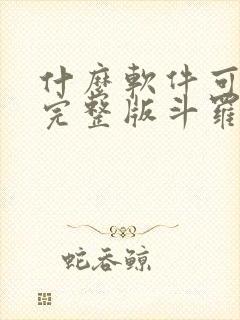 什麼軟件可
完整版斗羅
蛇吞鲸